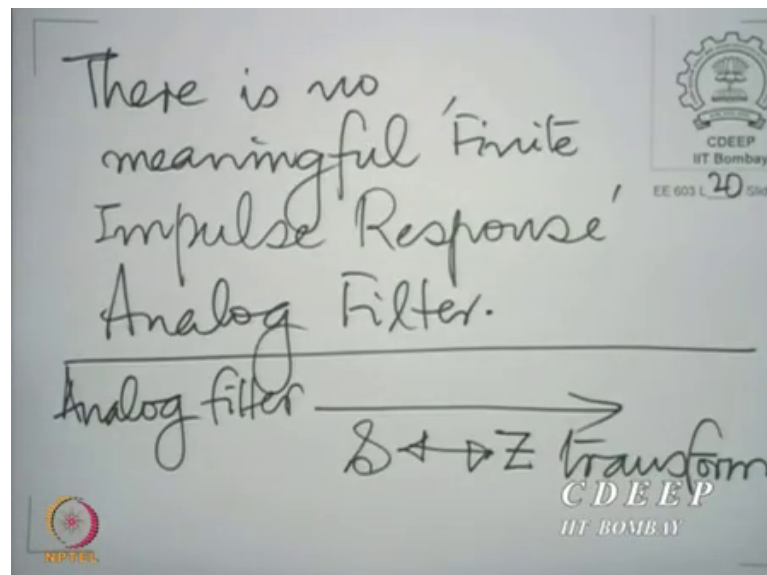 There is no
meaningful 'Finite
Impulse Response'
Analog Filter.
Analog filter
S ↔ Z transform
CDEEP
IIT Bombay
EE 603 L 20 Slid
CDEEP
IIT BOMBAY
NPTEL